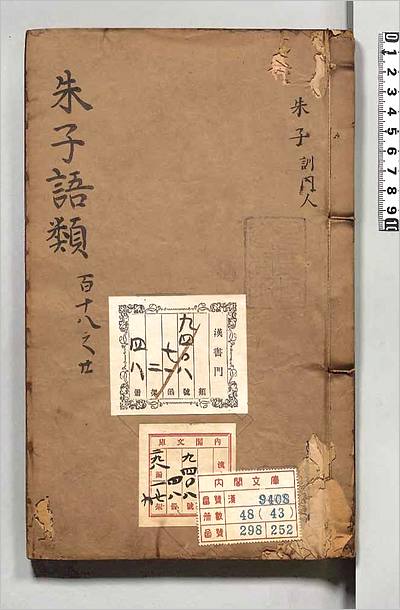 朱子語類
百十八之廿
朱子
訓門人
漢書門
類
九四〇八
號
七
函
二
架
四八
冊
內閣文庫
九四〇八
號
四八
冊
內閣文庫
番號 漢 9408
冊數 48(43)
函號 298 252
D 1 2 3 4 5 6 7 8 9 10